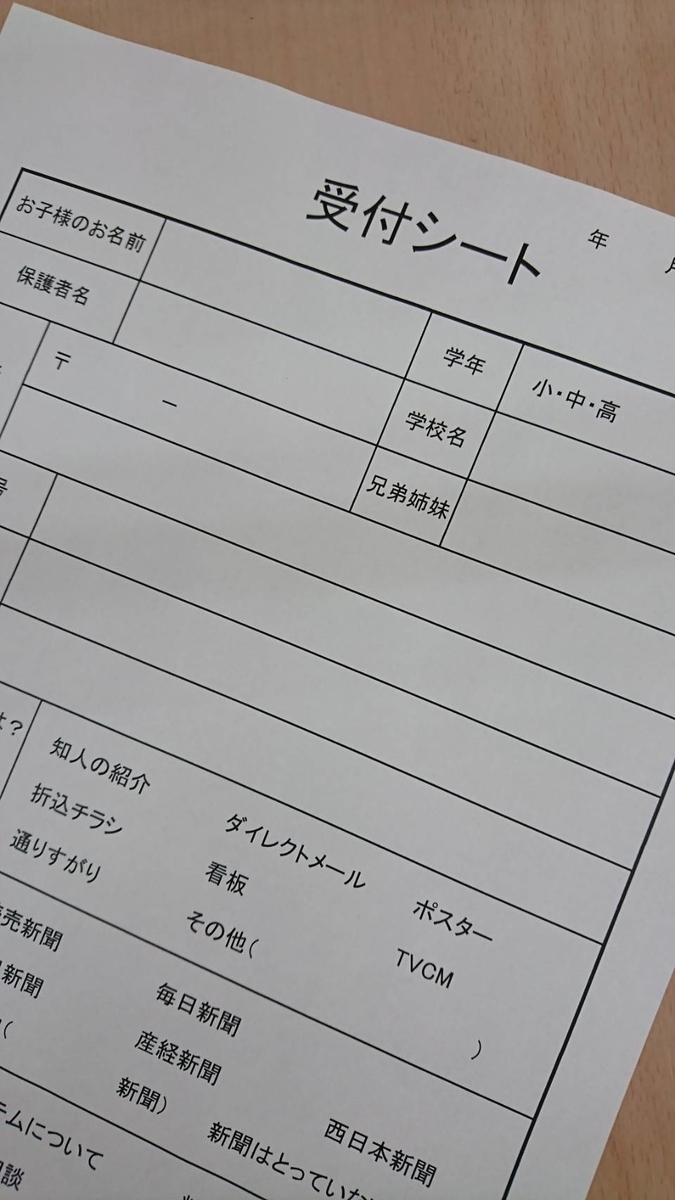 受付シート
年
お子様のお名前
保護者名
学年 小・中・高
〒 －
学校名
兄弟姉妹
知人の紹介 ダイレクトメール ポスター
折込チラシ 看板 TVCM
通りすがり その他( )
売新聞 毎日新聞 西日本新聞
新聞 産経新聞 新聞はとっていな
( 新聞)
テムについて